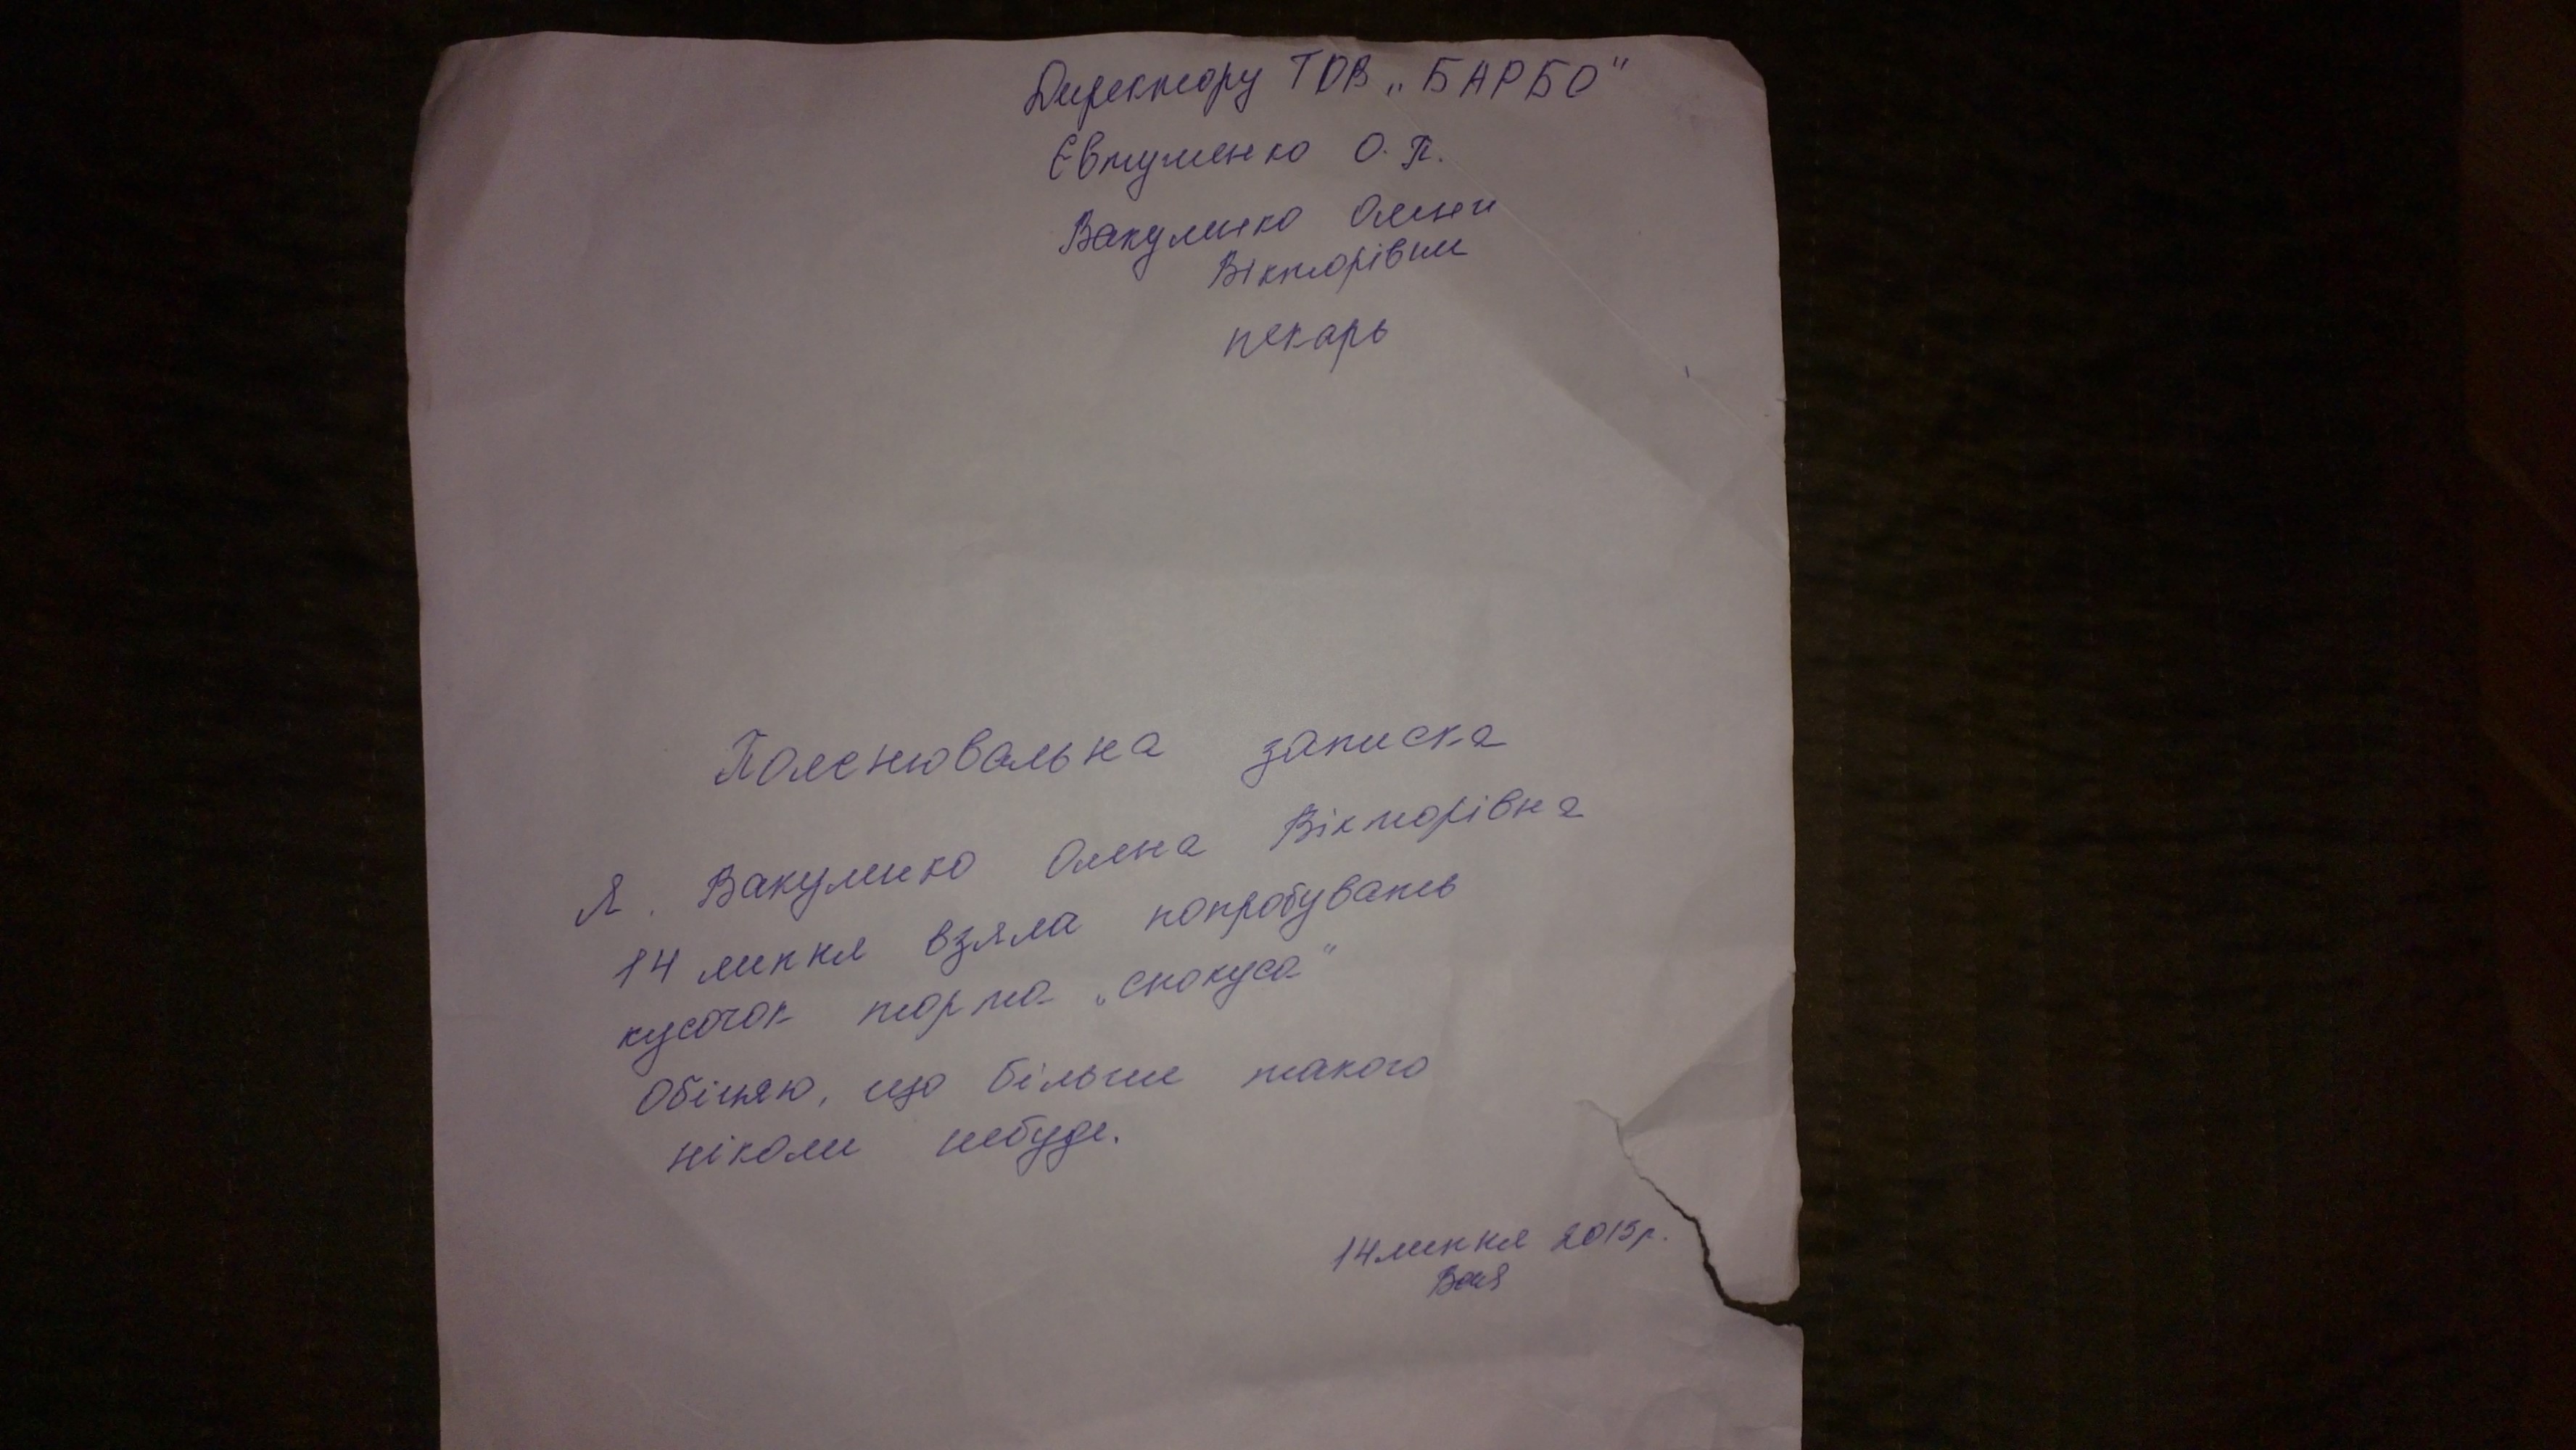 Директору ТОВ „БАРБО"
Євтушенко О. П.
Вакуленко Олени
Вікторівни
пекарь
Пояснювальна записка
Я. Вакуленко Олена Вікторівна
14 липня взяла попробувать
кусочок торта „спокуса"
Обіцяю, що більше такого
ніколи небуде.
14 липня 2015р.